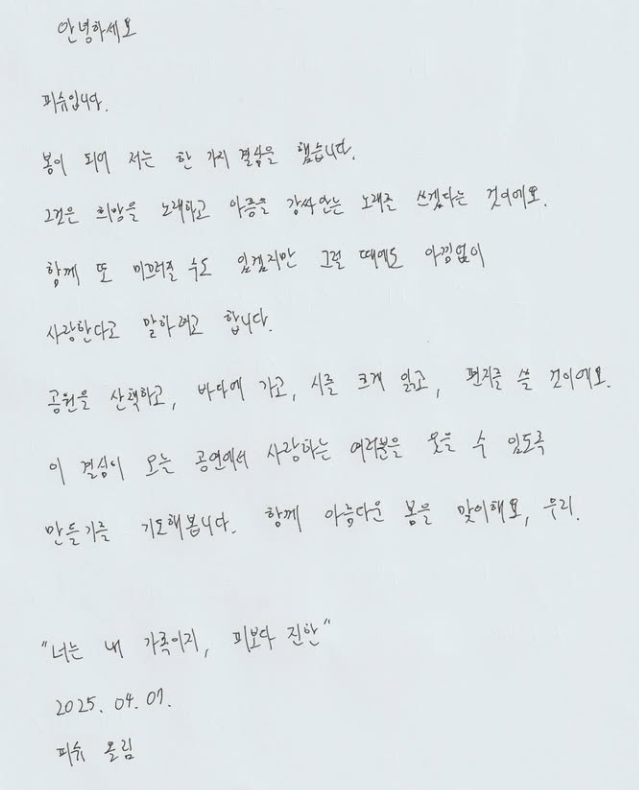 안녕하세요
피슈입니다.
봄이 되어 저는 한 가지 결심을 했습니다.
그것은 희망을 노래하고 아픔을 감싸안는 노래를 쓰겠다는 것이에요.
함께 또 미끄러질 수도 있겠지만 그럴 때에도 아낌없이
사랑한다고 말하려고 합니다.
공원을 산책하고, 바다에 가고, 시를 크게 읽고, 편지를 쓸 것이에요.
이 결심이 오늘 공연에서 사랑하는 여러분을 웃을 수 있도록
만들기를 기도해봅니다. 함께 아름다운 봄을 맞이해요, 우리.
"너는 내 가족이지, 피보다 진한"
2025. 04. 07.
피슈 올림